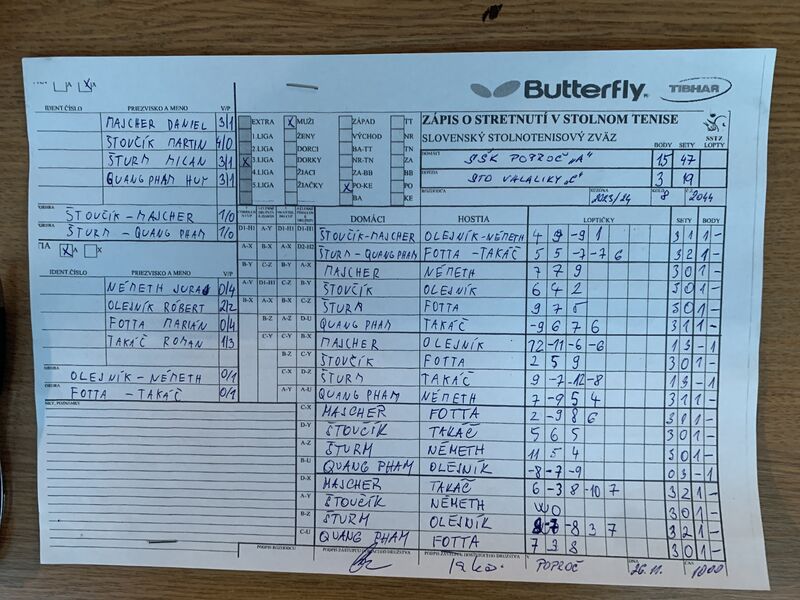 Butterfly
TIBHAR
ZÁPIS O STRETNUTÍ V STOLNOM TENISE
SLOVENSKÝ STOLNOTENISOVÝ ZVÄZ
SSTZ
BODY SETY LOPTY
DOMÁCI SŠK POPROČ "A" 15 47
HOSTIA STO VALALIKY "C" 3 19
ROZHODCA SEZÓNA 2023/24 8 2044
IDENT.ČÍSLO PRIEZVISKO A MENO V/P
MAJCHER DANIEL 3/1
ŠTOVČÍK MARTIN 4/0
ŠTURM MILAN 3/1
QUANG PHAM HUY 3/1
ŠTOVČÍK - MAJCHER 1/0
ŠTURM - QUANG PHAM 1/0
IDENT.ČÍSLO PRIEZVISKO A MENO V/P
NÉMETH JURAJ 0/4
OLEJNÍK RÓBERT 2/2
FOTTA MARIÁN 0/4
TAKÁČ ROMAN 1/3
OLEJNÍK - NÉMETH 0/1
FOTTA - TAKÁČ 0/1
EXTRA X MUŽI ZÁPAD TT
1.LIGA ŽENY VÝCHOD NR
2.LIGA DORCI BA-TT TN
X 3.LIGA DORKY NR-TN ZA
4.LIGA ŽIACI ZA-BB BB
5.LIGA ŽIAČKY X PO-KE PO
BA KE
DOMÁCI HOSTIA LOPTIČKY SETY BODY
ŠTOVČÍK-MAJCHER OLEJNÍK-NÉMETH 4 9 -9 1 3 1 1 -
ŠTURM-QUANGPHAM FOTTA -TAKÁČ 5 5 -7 -7 6 3 2 1 -
MAJCHER NÉMETH 7 7 9 3 0 1 -
ŠTOVČÍK OLEJNÍK 6 4 2 3 0 1 -
ŠTURM FOTTA 9 7 5 3 0 1 -
QUANG PHAM TAKÁČ -9 6 7 6 3 1 1 -
MAJCHER OLEJNÍK 12 -11 -6 -6 1 3 - 1
ŠTOVČÍK FOTTA 2 5 9 3 0 1 -
ŠTURM TAKÁČ 9 -7 -12 -8 1 3 - 1
QUANG PHAM NÉMETH 7 -9 5 4 3 1 1 -
MAJCHER FOTTA 2 -9 8 6 3 1 1 -
ŠTOVČÍK TAKÁČ 5 6 5 3 0 1 -
ŠTURM NÉMETH 11 5 4 3 0 1 -
QUANG PHAM OLEJNÍK -8 -7 -9 0 3 - 1
MAJCHER TAKÁČ 6 -3 8 -10 7 3 2 1 -
ŠTOVČÍK NÉMETH WO 3 0 1 -
ŠTURM OLEJNÍK -7 -8 3 7 3 2 1 -
QUANG PHAM FOTTA 7 3 8 3 0 1 -
PODPIS ROZHODCU PODPIS ZÁSTUPCU DOMÁCEHO DRUŽSTVA PODPIS ZÁSTUPCU HOSŤUJÚCEHO DRUŽSTVA V POPROČ DŇA 26.11. ČAS 1000